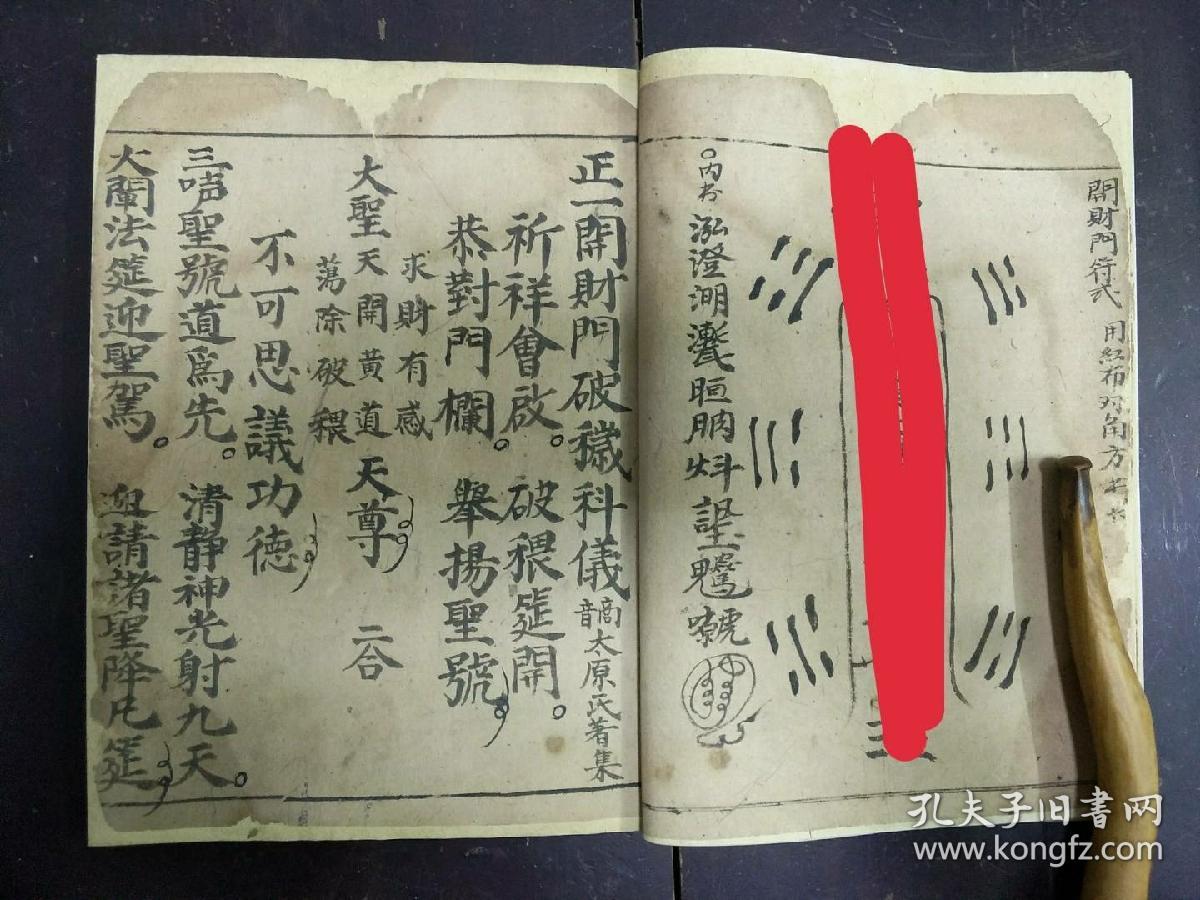 開財門行式 用紅布对角方
內书 泓澄淵 晅炳炓
正一開財門破穢科儀 太原氏著集
祈祥會啟。破穢筵開。
恭對門欄。舉揚聖號
求財有感
大聖天開黃道天尊 二合
蕩除破穢
不可思議功德
三啨聖號道爲先。清靜神光射九天。
大闡法筵迎聖駕。迎請諸聖降凡筵
孔夫子旧书网
www.kongfz.com